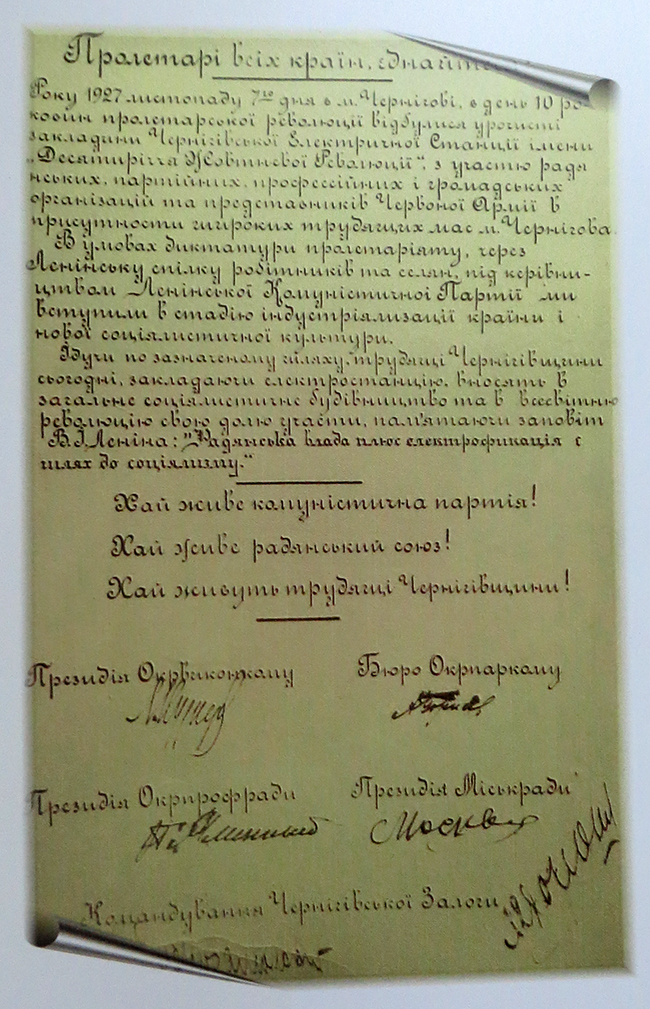 Пролетарі всіх країн, єднайтесь
Року 1927 листопаду 7го дня в м. Чернігові, в день 10 ро-
ковин пролетарської революції відбулися урочисті
закладини Чернігівської Електричної Станції імени
„Десятиріччя Жовтневої Революції“, з участю радя
нських, партійних, профессійних і громадських
організацій та представників Червоної Армії в
присутности широких трудящих мас м. Чернігова.
В умовах диктатури пролетаріяту, через
Ленінську спілку робітників та селян, під керівни-
цтвом Ленінської Комуністичної Партії ми
вступили в стадію індустріялизації країни і
нової соціялистичної культури.
Ідучи по зазначеному шляху, трудящі Чернігівщини
сьогодні, закладаючи електростанцію, вносять в
загальне соціялистичне будівництво та в всесвітню
революцію свою долю участи, пам'ятаючи заповіт
В.І. Леніна: „Радянська влада плюс електрофикація є
шлях до соціялизму.“
Хай живе комуністична партія!
Хай живе радянський союз!
Хай живуть трудящі Чернігівщини!
Президія Окрвиконкому
Бюро Окрпаркому
Президія Окрпрофради
Президія Міськради
Москва
Командування Чернігівської Залоги